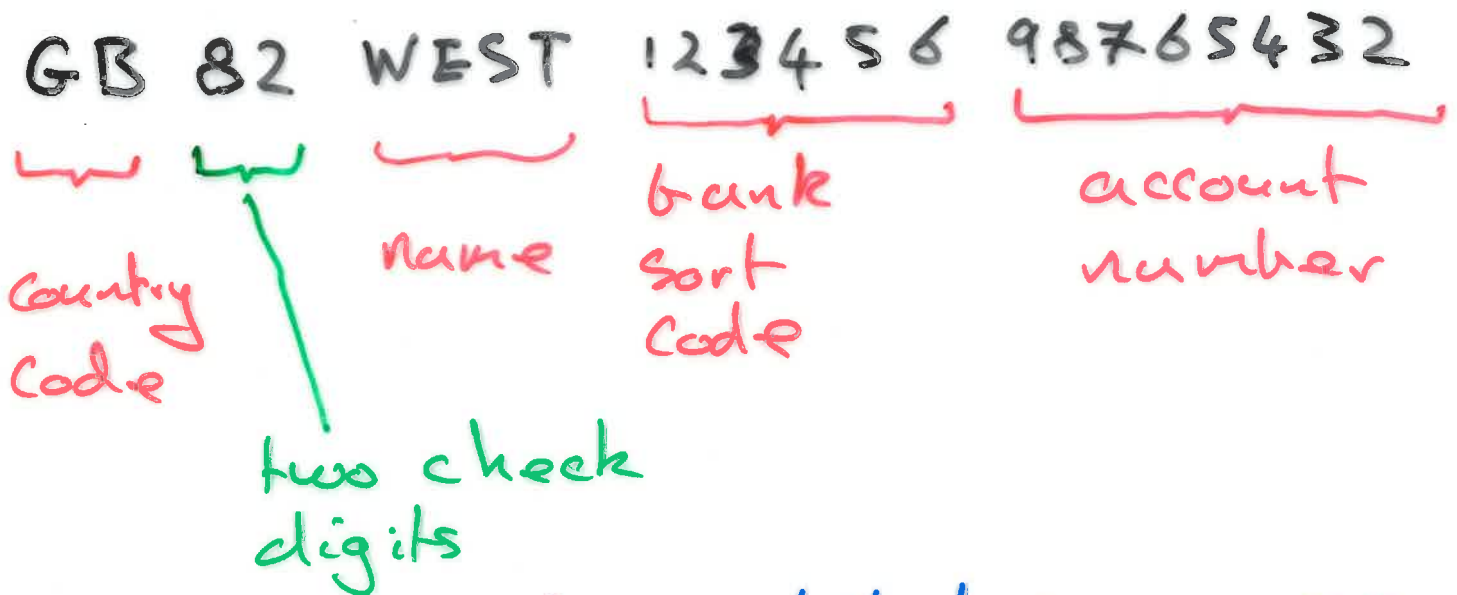 GB 82 WEST 123456 98765432
country code
two check digits
name
bank sort code
account number